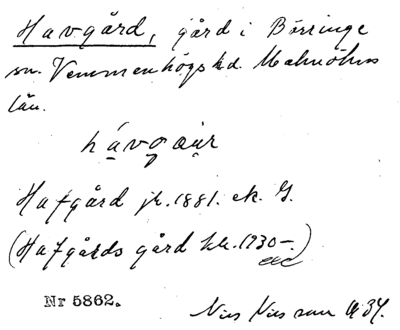 Havgård, gård i Börringe
sn. Vemmenhögs hd. Malmöhus
län.
hávgaur
Hafgård jr. 1881. ek. G.
(Hafgårds gård kk. 1730-)
Nr 5862.
Nils Nilsson